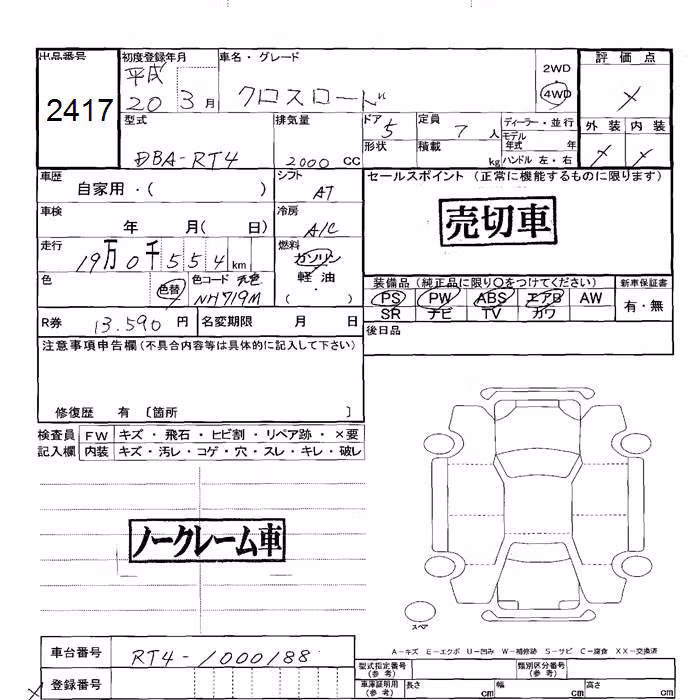 出品番号 初度登録年月 車名・グレード 評価点
2417 平成 20 3月 クロスロード 2WD 4WD ×
型式 排気量 ドア 5 定員 7人 ディーラー・並行 外装 内装
DBA-RT4 2000 CC 形状 積載 kg モデル年式 年 × ×
ハンドル 左・右
車歴 自家用・( ) シフト AT セールスポイント (正常に機能するものに限ります)
車検 年 月( 日) 冷房 A/C 売切車
走行 19万0千554km 燃料 ガソリン 軽・油 ( )
色 色替 色コード 元色 NH719M 装備品(純正品に限り○をつけてください) 新車保証書
PS PW ABS エアB AW 有・無
R券 13.590 円 名変期限 月 日 SR ナビ TV カワ
注意事項申告欄(不具合内容等は具体的に記入して下さい) 後日品
修復歴 有 〔箇所 〕
検査員 FW キズ・飛石・ヒビ割・リペア跡・×要
記入欄 内装 キズ・汚レ・コゲ・穴・スレ・キレ・破レ
ノークレーム車
スペア
A-キズ E-エクボ U-凹み W-補修跡 S-サビ C-腐食 XX-交換済
車台番号 RT4-1000188 型式指定番号(参考) 類別区分番号(参考)
登録番号 車庫証明用(参考) 長さ cm 幅 cm 高さ cm